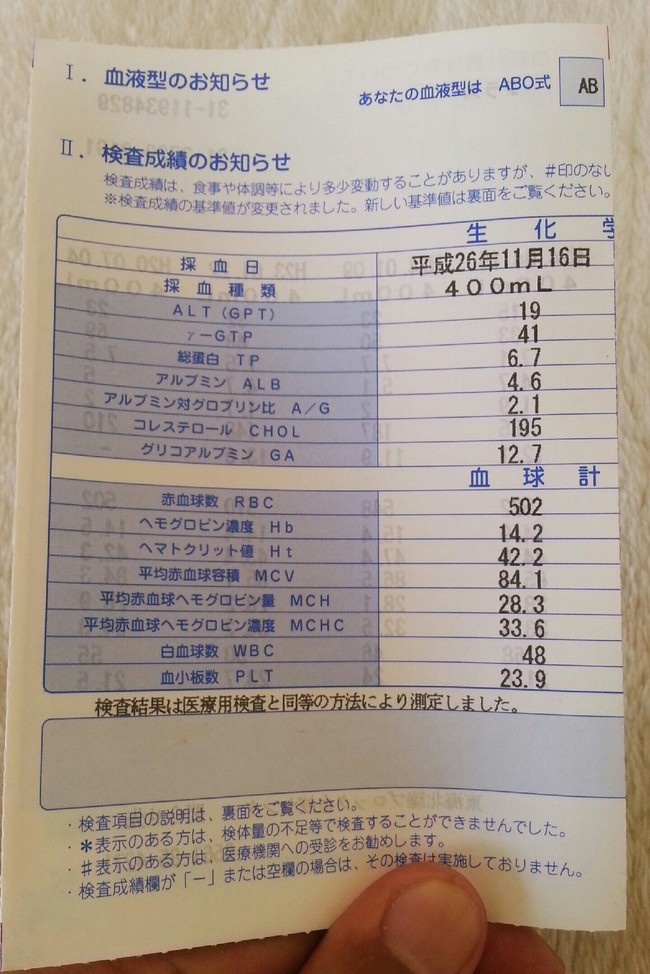 Ⅰ. 血液型のお知らせ
あなたの血液型は ABO式 AB
Ⅱ. 検査成績のお知らせ
検査成績は、食事や体調等により多少変動することがありますが、#印のない
※検査成績の基準値が変更されました。新しい基準値は裏面をご覧ください。
生 化 学
採 血 日 平成26年11月16日
採 血 種 類 400mL
ALT(GPT) 19
γ-GTP 41
総蛋白 TP 6.7
アルブミン ALB 4.6
アルブミン対グロブリン比 A/G 2.1
コレステロール CHOL 195
グリコアルブミン GA 12.7
血 球 計
赤血球数 RBC 502
ヘモグロビン濃度 Hb 14.2
ヘマトクリット値 Ht 42.2
平均赤血球容積 MCV 84.1
平均赤血球ヘモグロビン量 MCH 28.3
平均赤血球ヘモグロビン濃度 MCHC 33.6
白血球数 WBC 48
血小板数 PLT 23.9
検査結果は医療用検査と同等の方法により測定しました。
・検査項目の説明は、裏面をご覧ください。
・*表示のある方は、検体量の不足等で検査することができませんでした。
・#表示のある方は、医療機関への受診をお勧めします。
・検査成績欄が「-」または空欄の場合は、その検査は実施しておりません。